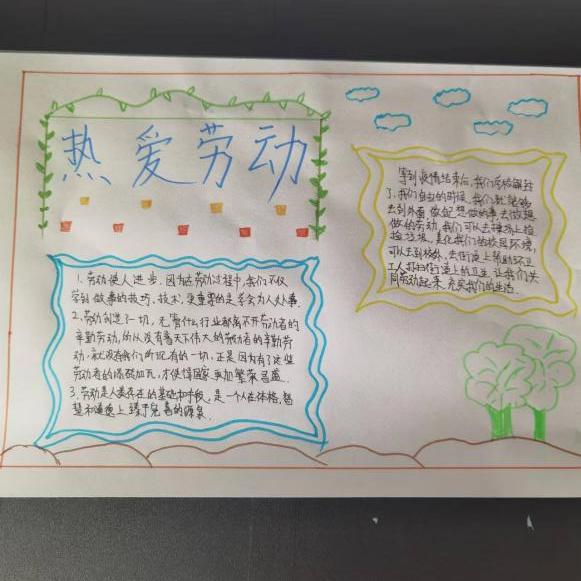 热爱劳动
1、劳动使人进步，因为在劳动过程中，我们不仅
学到做事的技巧、技术，更重要的是学会为人处事.
2、劳动创造了一切，无管什么行业都离不开劳动者的
辛勤劳动，所以没有普天下伟大的劳动者的辛勤劳
动，就没有我们所现有的一切，正是因为有了这些
劳动者的添砖加瓦，才使得国家更加繁荣昌盛.
3、劳动是人类存在的基础和手段，是一个人在体格、智
慧和道德上臻于完善的源泉.
等到疫情结束后，我们
了，我们自由的时候，我们就能够
去到外面做起想做的事，去做想
做的劳动，我们可以去操场上捡
捡垃圾，美化我们的校园环境，
可以去到校外，去街道上帮助环卫
工人打扫街道上的卫生，让我们共
同劳动起来，充实我们的生活.